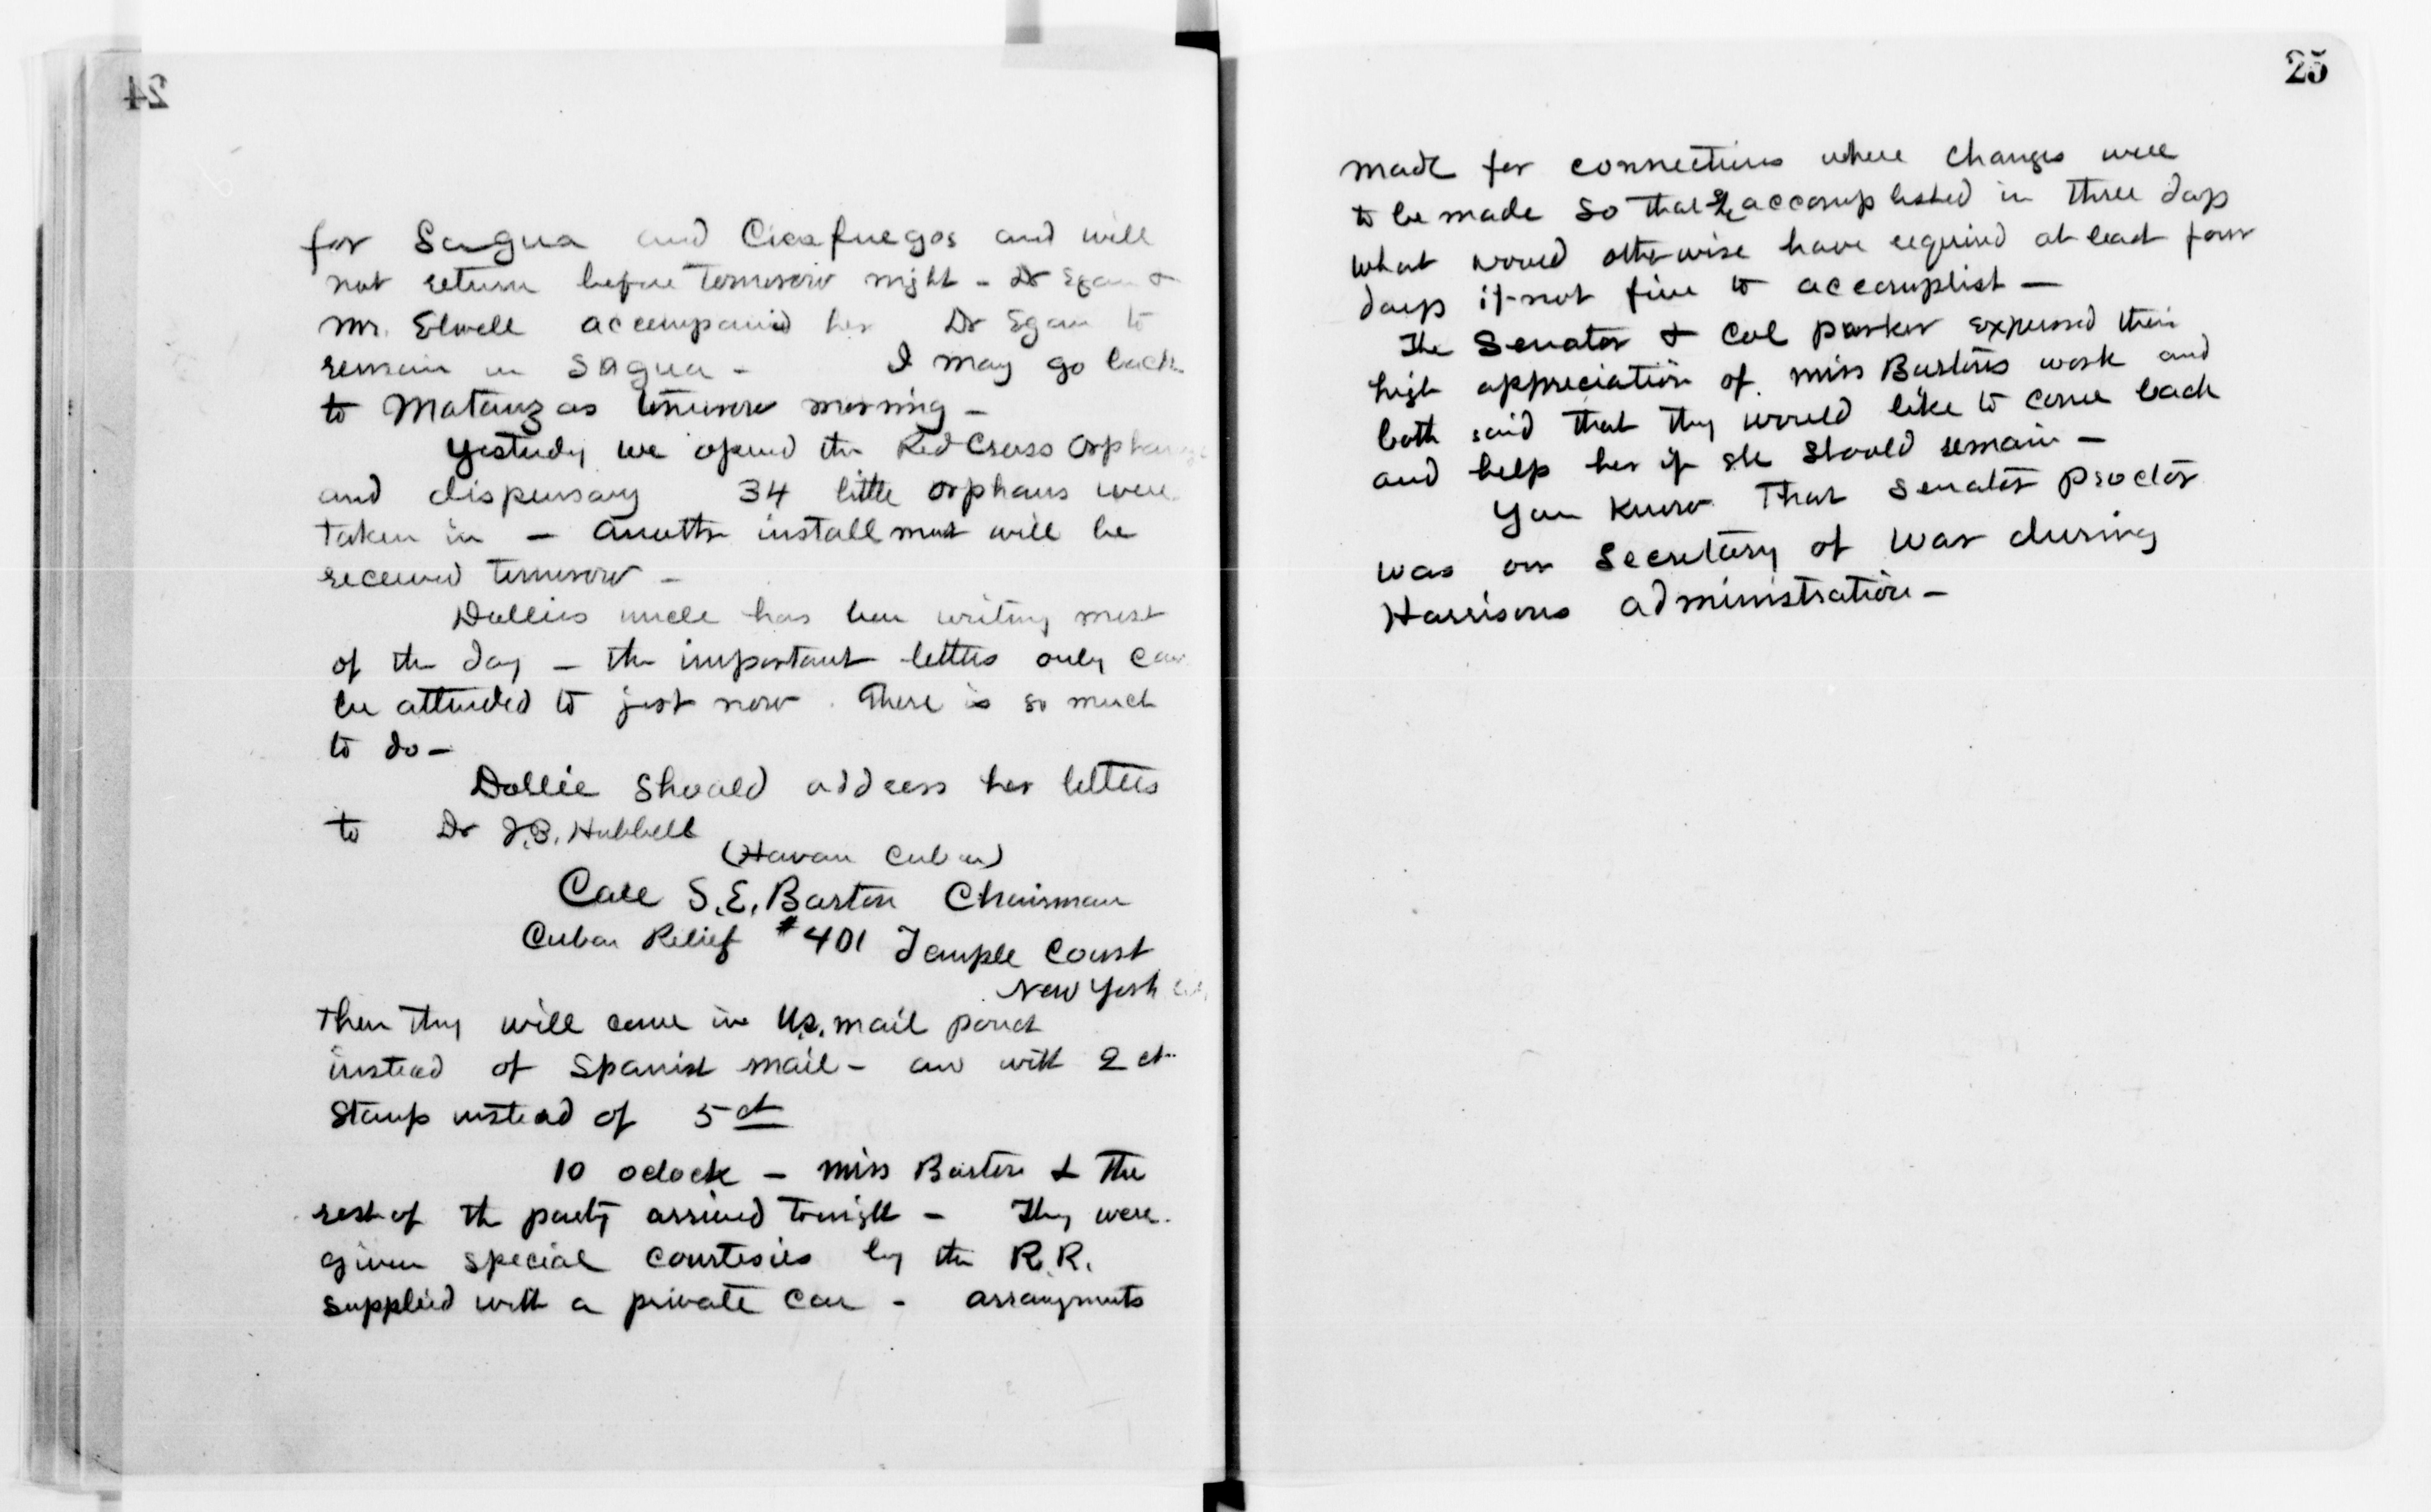 24
for Sagua and Cienfuegos and will
not return before tomorrow night - Dr Egan &
Mr. Elwell accompanied her Dr Egan to
remain in Sagua - I may go back
to Matanzas tomorrow morning -
Yesterday we opened the Red Cross Orphanage
and dispensary 34 little orphans were
taken in - another installment will be
received tomorrow -
Dollies uncle has been writing most
of the day - the important letters only can
be attended to just now. There is so much
to do -
Dollie should address her letters
to Dr J.B. Hubbell
(Havan Cuba)
Care S.E. Barton Chairman
Cuban Relief #401 Temple Court
New York City
Then they will come in U.S. mail pouch
instead of Spanish mail - and with 2 ct
Stamp instead of 5 ct
10 oclock - Miss Barton & the
rest of the party arrived tonight - They were
given special courtesies by the R.R.
supplied with a private car - arrangments
25
made for connections where changes were
to be made so that she accomplished in three days
what would otherwise have required at least four
days if not five to accomplish -
The Senator & Col Parker expressed their
high appreciation of Miss Bartons work and
both said that they would like to come back
and help her if she should remain -
You know that Senator Proctor
was our Secretary of War during
Harrisons administration -